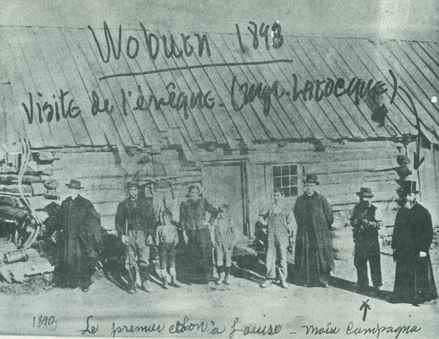 Woburn 1893
Visite de l'évêque. (Mgr. LaRocque)
1890 Le premier à gauche - Moïse Campagna